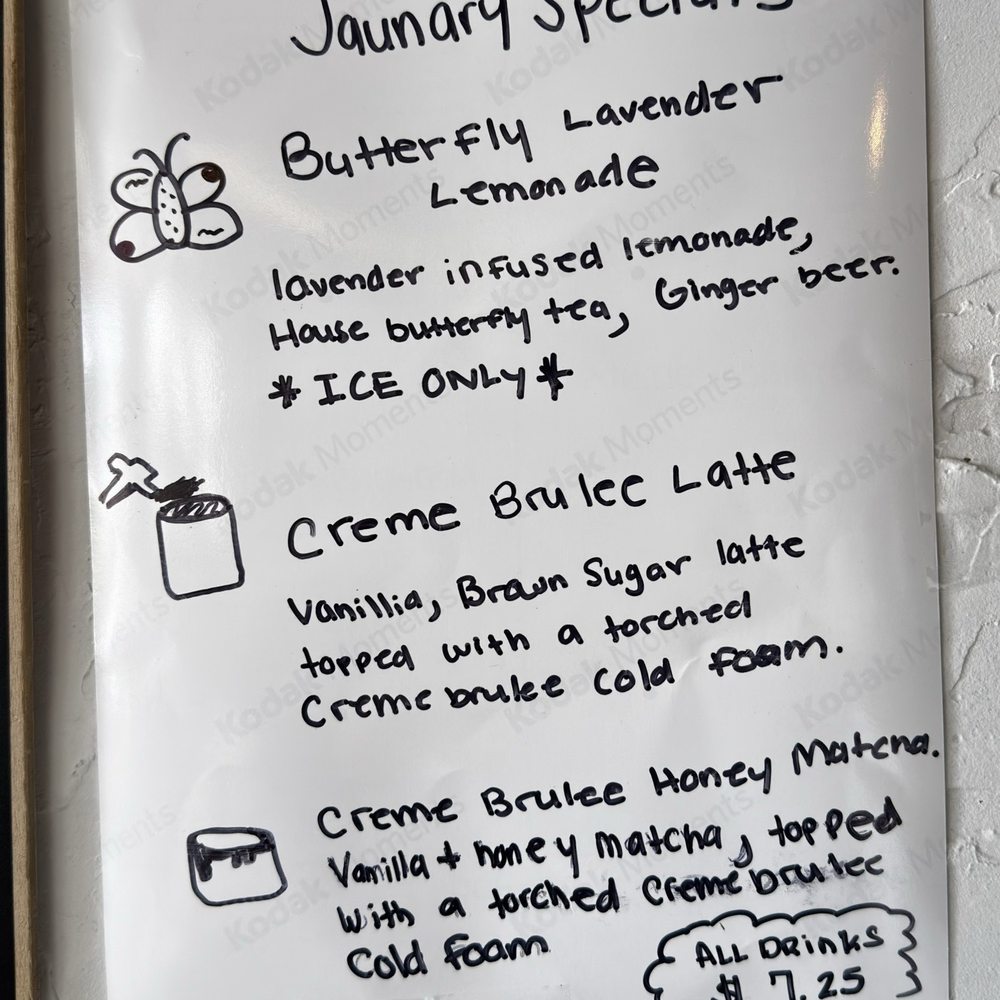 Jaunary Specials
Butterfly Lavender
Lemonade
lavender infused lemonade,
House butterfly tea, Ginger beer.
* ICE ONLY *
Creme Brulee Latte
Vanillia, Brown Sugar latte
topped with a torched
Creme brulee Cold foam.
Creme Brulee Honey Matcha.
Vanilla + honey matcha, topped
with a torched Creme brulee
Cold foam
ALL DRINKS
$ 7.25
Kodak Moments